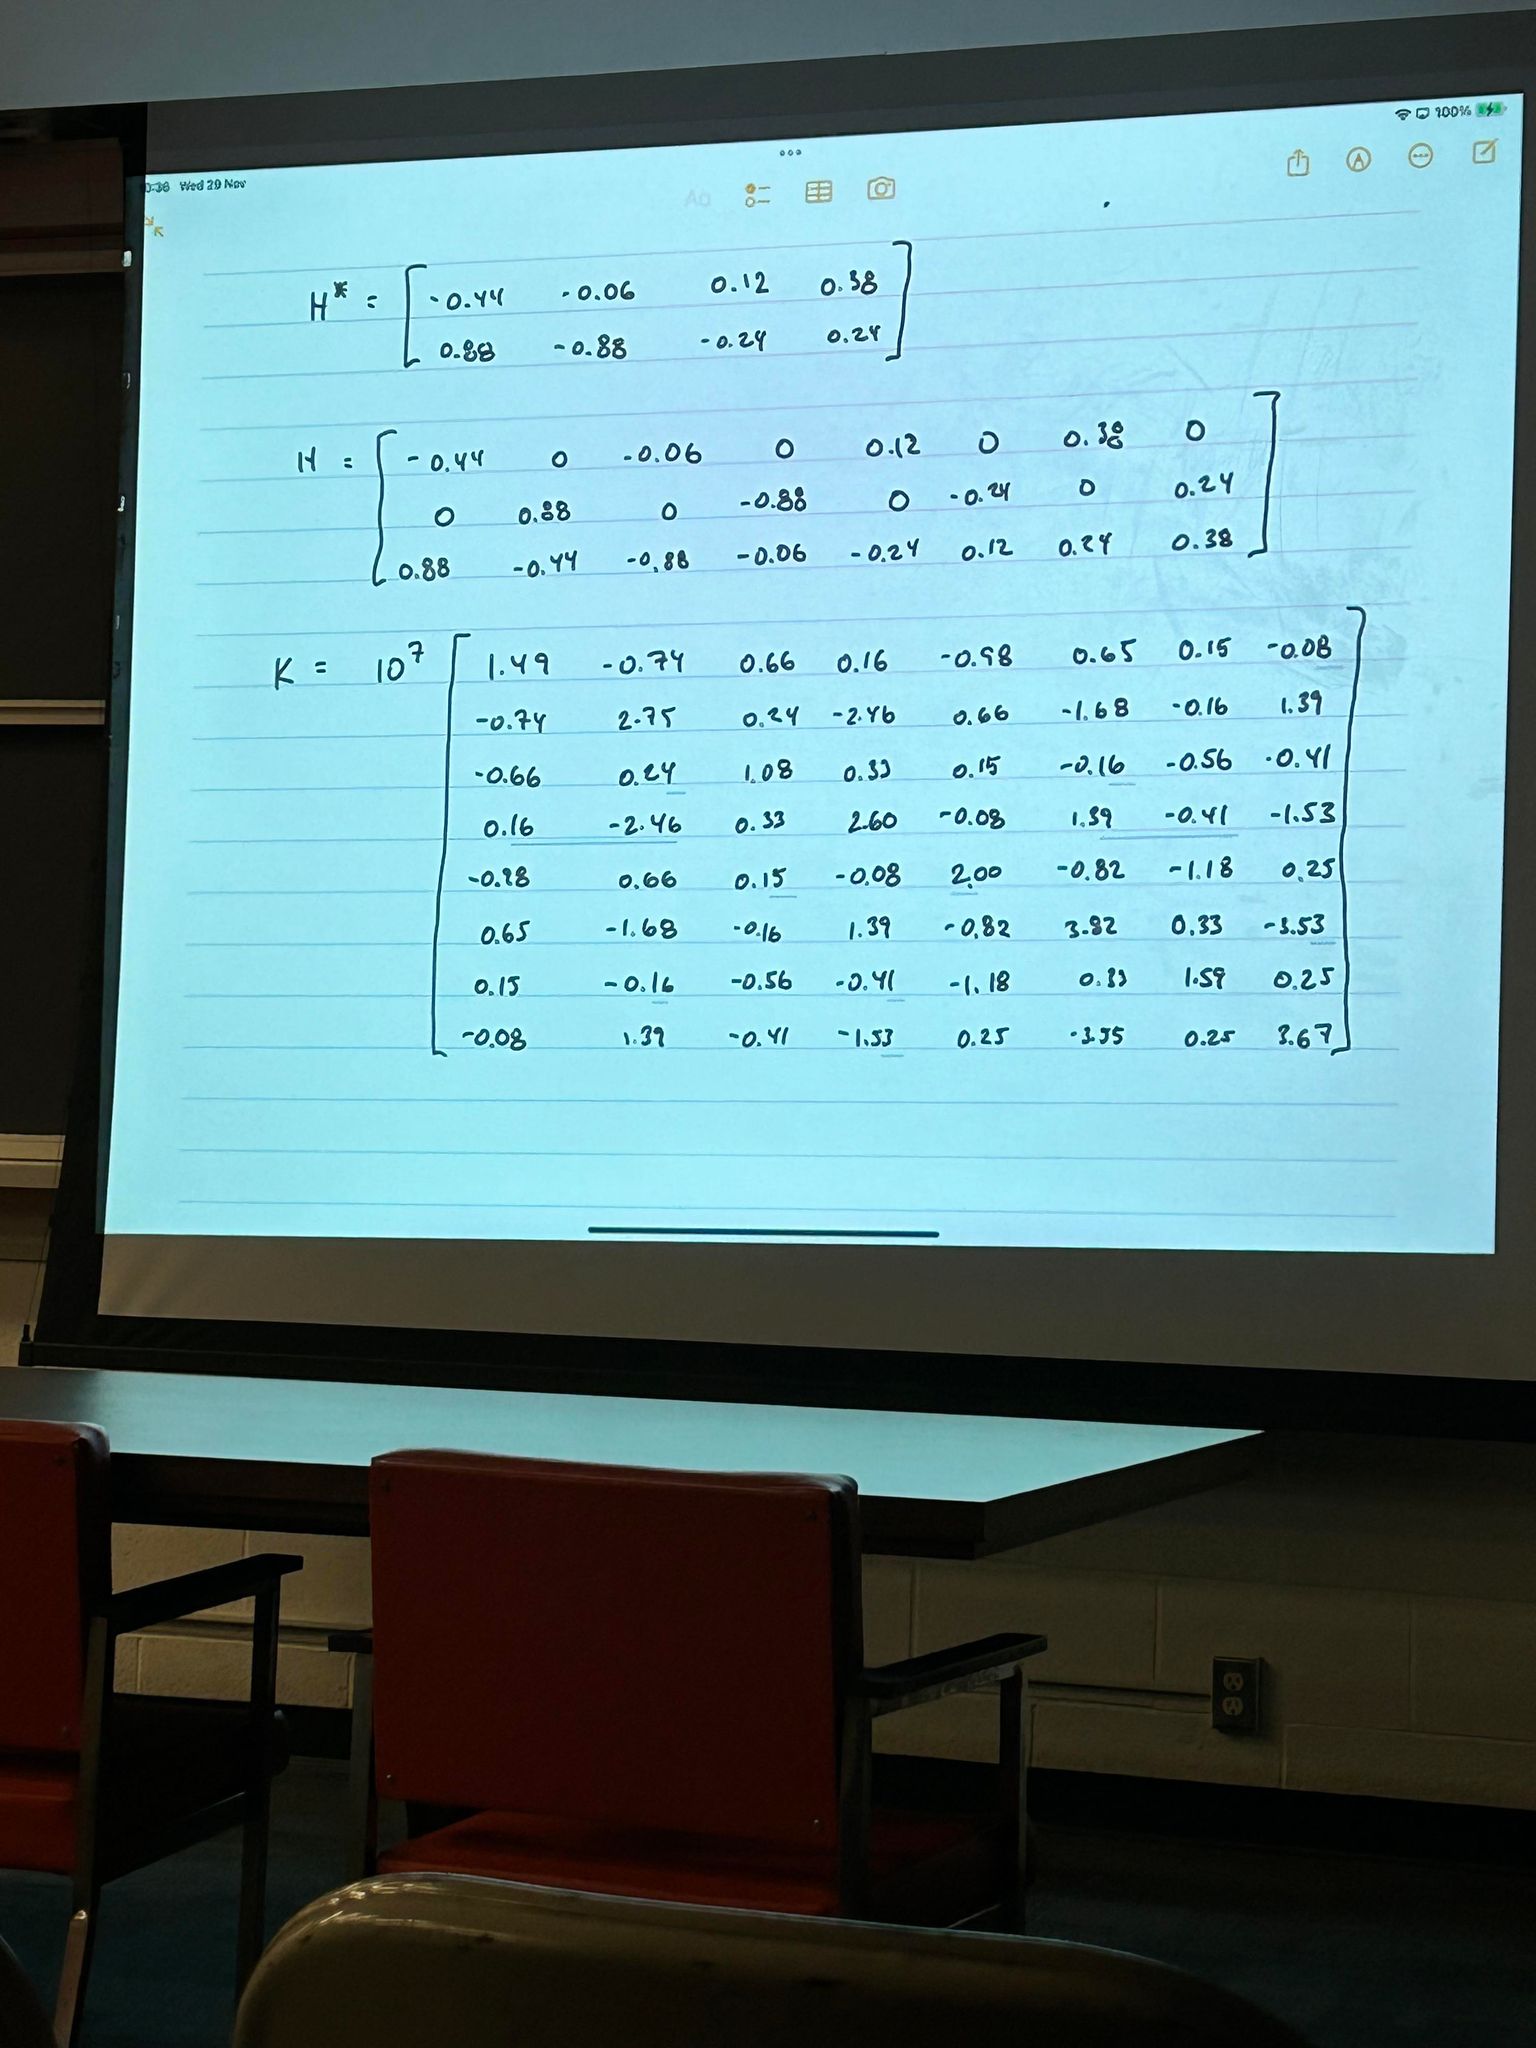 :36 Wed 29 Nov
100%
Aa
H* = [ -0.44 -0.06 0.12 0.38
0.88 -0.88 -0.24 0.24 ]
H = [ -0.44 0 -0.06 0 0.12 0 0.38 0
0 0.88 0 -0.88 0 -0.24 0 0.24
0.88 -0.44 -0.88 -0.06 -0.24 0.12 0.24 0.38 ]
K = 10⁷ [ 1.49 -0.74 0.66 0.16 -0.98 0.65 0.15 -0.08
-0.74 2.75 0.24 -2.46 0.66 -1.68 -0.16 1.39
-0.66 0.24 1.08 0.33 0.15 -0.16 -0.56 -0.41
0.16 -2.46 0.33 2.60 -0.08 1.39 -0.41 -1.53
0.66 0.15 -0.08 2.00 -0.82 -1.18 0.25
0.65 -1.68 -0.16 1.39 -0.82 3.82 0.33 -3.53
0.15 -0.16 -0.56 -0.41 -1.18 0.33 1.59 0.25
-0.08 1.39 -0.41 -1.53 0.25 0.25 3.67 ]